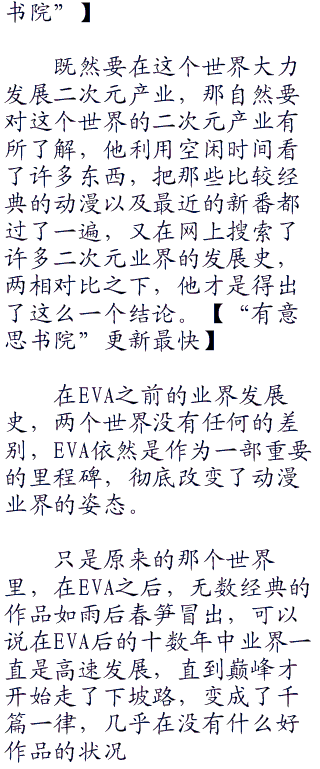 书院”】
既然要在这个世界大力
发展二次元产业，那自然要
对这个世界的二次元产业有
所了解，他利用空闲时间看
了许多东西，把那些比较经
典的动漫以及最近的新番都
过了一遍，又在网上搜索了
许多二次元业界的发展史，
两相对比之下，他才是得出
了这么一个结论。【“有意
思书院”更新最快】
在EVA之前的业界发展
史，两个世界没有任何的差
别，EVA依然是作为一部重要
的里程碑，彻底改变了动漫
业界的姿态。
只是原来的那个世界
里，在EVA之后，无数经典的
作品如雨后春笋冒出，可以
说在EVA后的十数年中业界一
直是高速发展，直到巅峰才
开始走了下坡路，变成了千
篇一律，几乎在没有什么好
作品的状况